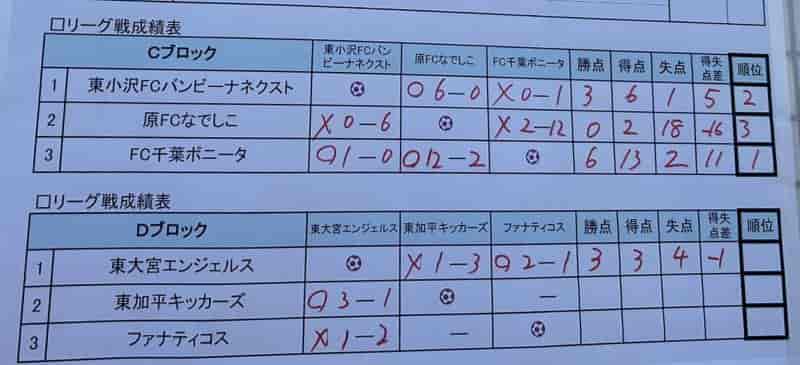 □リーグ戦成績表
Cブロック 東小沢FCバンビーナネクスト 原FCなでしこ FC千葉ボニータ 勝点 得点 失点 得失点差 順位
1 東小沢FCバンビーナネクスト ○6-0 ×0-1 3 6 1 5 2
2 原FCなでしこ ×0-6 ×2-12 0 2 18 -16 3
3 FC千葉ボニータ ○1-0 ○12-2 6 13 2 11 1
□リーグ戦成績表
Dブロック 東大宮エンジェルス 東加平キッカーズ ファナティコス 勝点 得点 失点 得失点差 順位
1 東大宮エンジェルス ×1-3 ○2-1 3 3 4 -1
2 東加平キッカーズ ○3-1 -
3 ファナティコス ×1-2 -